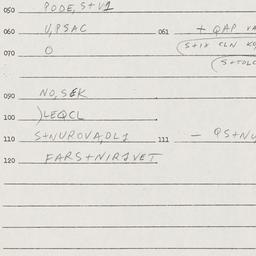 050 PODE, S+V1
060 V, PSAC 061 + QAP VA
(S+IX CLN KO
070 O (S+TOLC
090 NO, SEK
100 )LEQCL
110 S+NUROVA, DL1 111 - QS+NU
120 FARS+NIR1VET